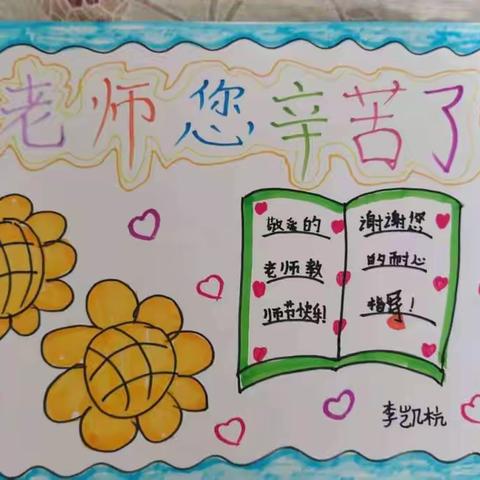 老师您辛苦了
敬爱的
老师教
师节快乐!
谢谢您
的耐心
指导!
李凯杭